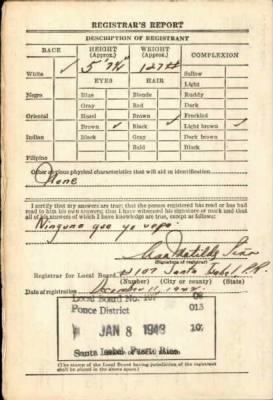 REGISTRAR'S REPORT
DESCRIPTION OF REGISTRANT
RACE HEIGHT (Approx.) WEIGHT (Approx.) COMPLEXION
White ✓ 5' 7½" 127# Sallow
Light
EYES HAIR
Negro Blue Blonde Ruddy
Gray Red Dark
Oriental Hazel Brown Freckled
Brown ✓ Black ✓ Light brown ✓
Indian Black Gray Dark brown
Bald Black
Filipino
Other obvious physical characteristics that will aid in identification
None
I certify that my answers are true; that the person registered has read or has had
read to him his own answers; that I have witnessed his signature or mark and that
all of his answers of which I have knowledge are true, except as follows:
Ninguna que yo sepa.
(Signature of registrar)
Registrar for Local Board #107 Santa Isabel, P.R.
(Number) (City or county) (State)
Date of registration December 11, 1942
Local Board No. 107 09
Ponce District 013
JAN 8 1943 107
Santa Isabel Puerto Rico
(The stamp of the Local Board having jurisdiction of the registrant
shall be placed in the above space.)